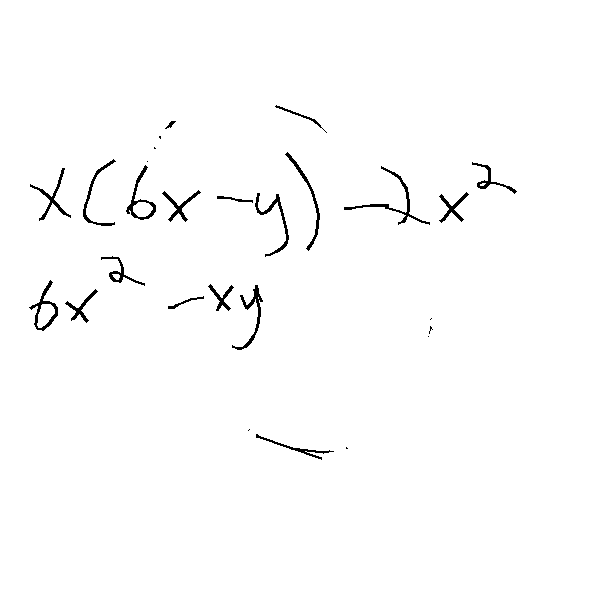 x(6x-y)-2x²
6x²-xy